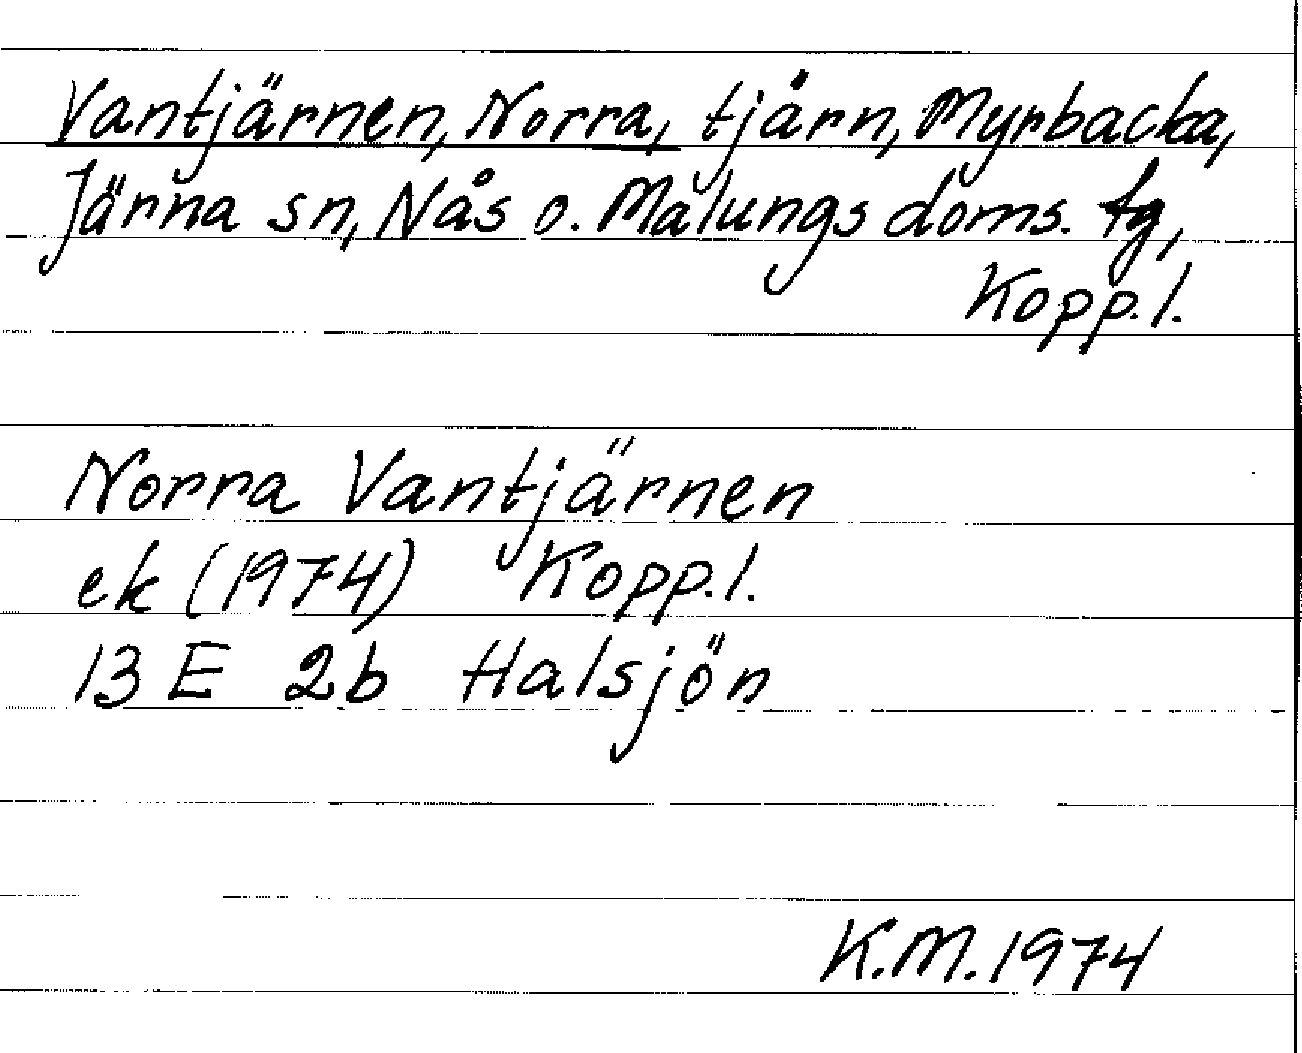 Vantjärnen, Norra, tjärn, Myrbacka,
Järna sn, Nås o. Malungs doms. tg,
Kopp.l.
Norra Vantjärnen
ek (1974) Kopp.l.
13 E 2b Halsjön
K.M. 1974